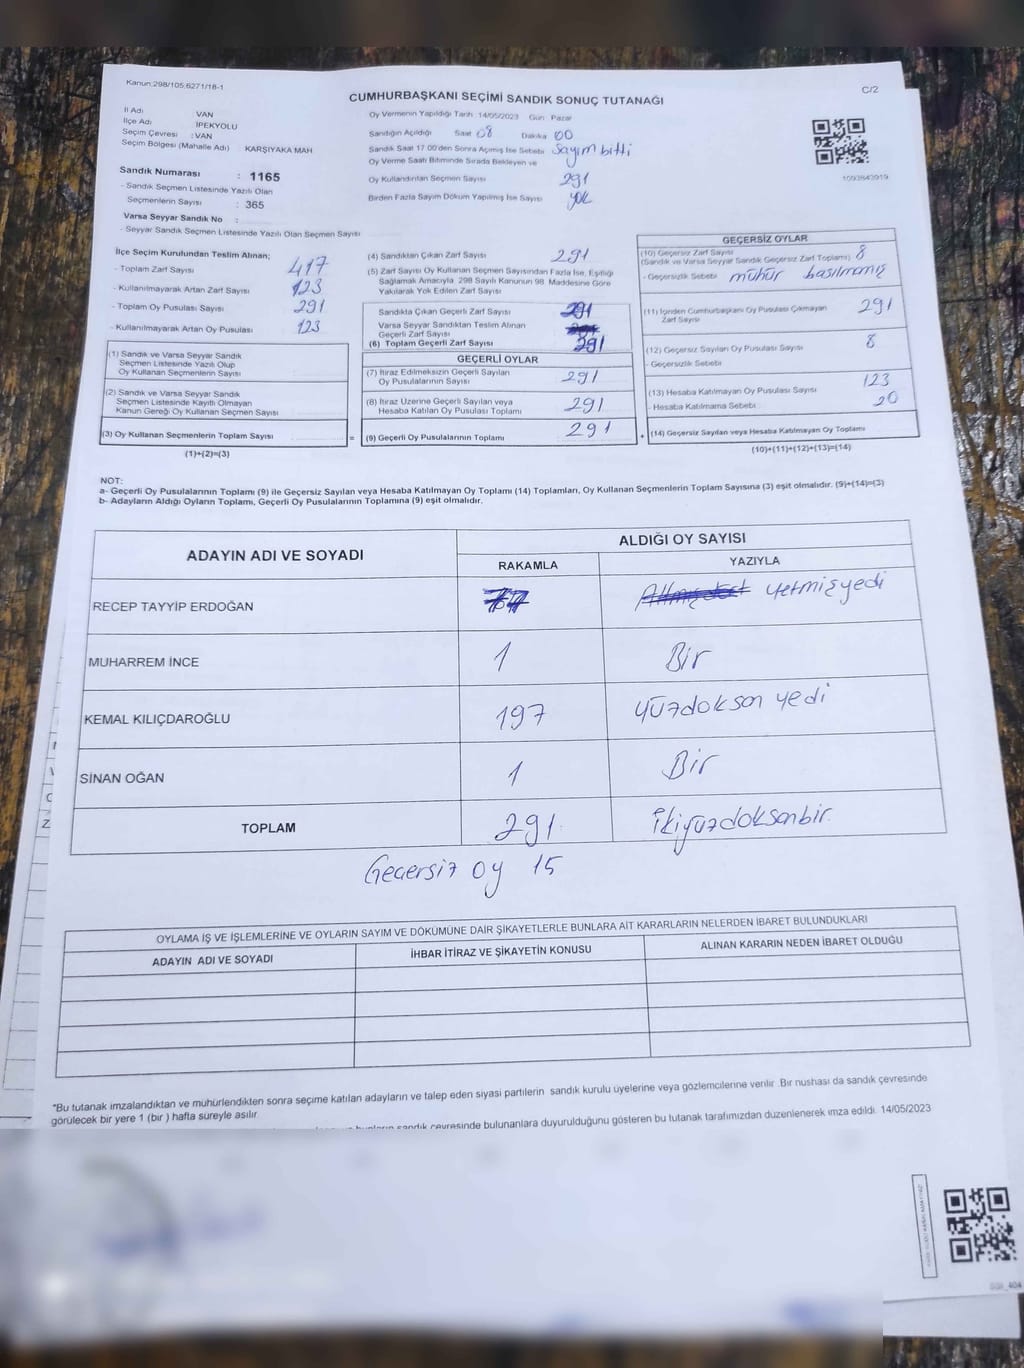 Kanun:298/105,6271/18-1
C/2
CUMHURBAŞKANI SEÇİMİ SANDIK SONUÇ TUTANAĞI
İl Adı VAN
İlçe Adı İPEKYOLU
Seçim Çevresi :VAN
Seçim Bölgesi (Mahalle Adı) KARŞIYAKA MAH
Sandık Numarası : 1165
- Sandık Seçmen Listesinde Yazılı Olan
Seçmenlerin Sayısı : 365
Varsa Seyyar Sandık No :
- Seyyar Sandık Seçmen Listesinde Yazılı Olan Seçmen Sayısı
Oy Vermenin Yapıldığı Tarih 14/05/2023 Gün Pazar
Sandığın Açıldığı Saat 08 Dakika 00
Sandık Saat 17 00'den Sonra Açılmış İse Sebebi Sayım bitti
Oy Verme Saati Bitiminde Sırada Bekleyen ve
Oy Kullandırılan Seçmen Sayısı 291
Birden Fazla Sayım Döküm Yapılmış İse Sayısı yok
1093843919
İlçe Seçim Kurulundan Teslim Alınan;
- Toplam Zarf Sayısı 417
- Kullanılmayarak Artan Zarf Sayısı 123
- Toplam Oy Pusulası Sayısı 291
- Kullanılmayarak Artan Oy Pusulası 123
(1) Sandık ve Varsa Seyyar Sandık
Seçmen Listesinde Yazılı Olup
Oy Kullanan Seçmenlerin Sayısı
(2) Sandık ve Varsa Seyyar Sandık
Seçmen Listesinde Kayıtlı Olmayan
Kanun Gereği Oy Kullanan Seçmen Sayısı
(3) Oy Kullanan Seçmenlerin Toplam Sayısı =
(1)+(2)=(3)
(4) Sandıktan Çıkan Zarf Sayısı 291
(5) Zarf Sayısı Oy Kullanan Seçmen Sayısından Fazla İse, Eşitliği
Sağlamak Amacıyla 298 Sayılı Kanunun 98. Maddesine Göre
Yakılarak Yok Edilen Zarf Sayısı
Sandıkta Çıkan Geçerli Zarf Sayısı 291
Varsa Seyyar Sandıktan Teslim Alınan
Geçerli Zarf Sayısı
(6) Toplam Geçerli Zarf Sayısı 291
GEÇERLİ OYLAR
(7) İtiraz Edilmeksizin Geçerli Sayılan
Oy Pusulalarının Sayısı 291
(8) İtiraz Üzerine Geçerli Sayılan veya
Hesaba Katılan Oy Pusulası Toplamı 291
(9) Geçerli Oy Pusulalarının Toplamı 291 +
GEÇERSİZ OYLAR
(10) Geçersiz Zarf Sayısı 8
(Sandık ve Varsa Seyyar Sandık Geçersiz Zarf Toplamı)
- Geçersizlik Sebebi mühür basılmamış
(11) İçinden Cumhurbaşkanı Oy Pusulası Çıkmayan
Zarf Sayısı 291
(12) Geçersiz Sayılan Oy Pusulası Sayısı 8
- Geçersizlik Sebebi
(13) Hesaba Katılmayan Oy Pusulası Sayısı 123
- Hesaba Katılmama Sebebi 20
(14) Geçersiz Sayılan veya Hesaba Katılmayan Oy Toplamı
(10)+(11)+(12)+(13)=(14)
NOT:
a- Geçerli Oy Pusulalarının Toplamı (9) ile Geçersiz Sayılan veya Hesaba Katılmayan Oy Toplamı (14) Toplamları, Oy Kullanan Seçmenlerin Toplam Sayısına (3) eşit olmalıdır. (9)+(14)=(3)
b- Adayların Aldığı Oyların Toplamı, Geçerli Oy Pusulalarının Toplamına (9) eşit olmalıdır.
ADAYIN ADI VE SOYADI
ALDIĞI OY SAYISI
RAKAMLA YAZIYLA
RECEP TAYYİP ERDOĞAN Altmışdört yetmişyedi
MUHARREM İNCE 1 Bir
KEMAL KILIÇDAROĞLU 197 yüzdokson yedi
SİNAN OĞAN 1 Bir
TOPLAM 291 ikiyüzdoksanbir.
Geçersiz oy 15
OYLAMA İŞ VE İŞLEMLERİNE VE OYLARIN SAYIM VE DÖKÜMÜNE DAİR ŞİKAYETLERLE BUNLARA AİT KARARLARIN NELERDEN İBARET BULUNDUKLARI
ADAYIN ADI VE SOYADI İHBAR İTİRAZ VE ŞİKAYETİN KONUSU ALINAN KARARIN NEDEN İBARET OLDUĞU
*Bu tutanak imzalandıktan ve mühürlendikten sonra seçime katılan adayların ve talep eden siyasi partilerin sandık kurulu üyelerine veya gözlemcilerine verilir. Bir nushası da sandık çevresinde
görülecek bir yere 1 (bir ) hafta süreyle asılır.
sandık çevresinde bulunanlara duyurulduğunu gösteren bu tutanak tarafımızdan düzenlenerek imza edildi. 14/05/2023